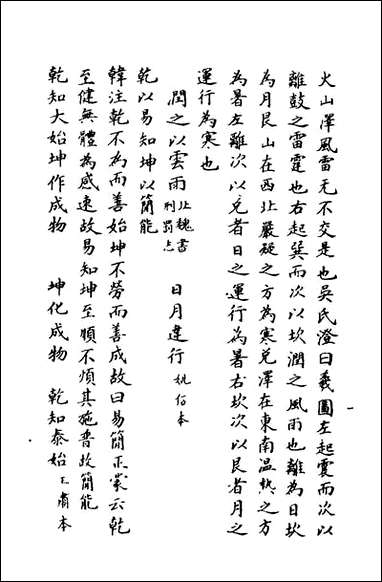 火山澤風雷无不交是也吳氏澄曰羲圖左起震而次以
離鼓之雷霆也右起巽而次以坎潤之風雨也離為日坎
為月艮山在西北嚴凝之方為寒兌澤在東南温熱之方
為暑左離次以兌者日之運行為暑右坎次以艮者月之
運行為寒也
潤之以雲雨北魏書刑罰志 日月違行姚伯本
乾以易知坤以簡能
韓注乾不為而善始坤不勞而善成故曰易簡正蒙云乾
至健無體為感速故易知坤至順不煩其施普故簡能
乾知大始坤作成物 坤化成物 乾知泰始王肅本